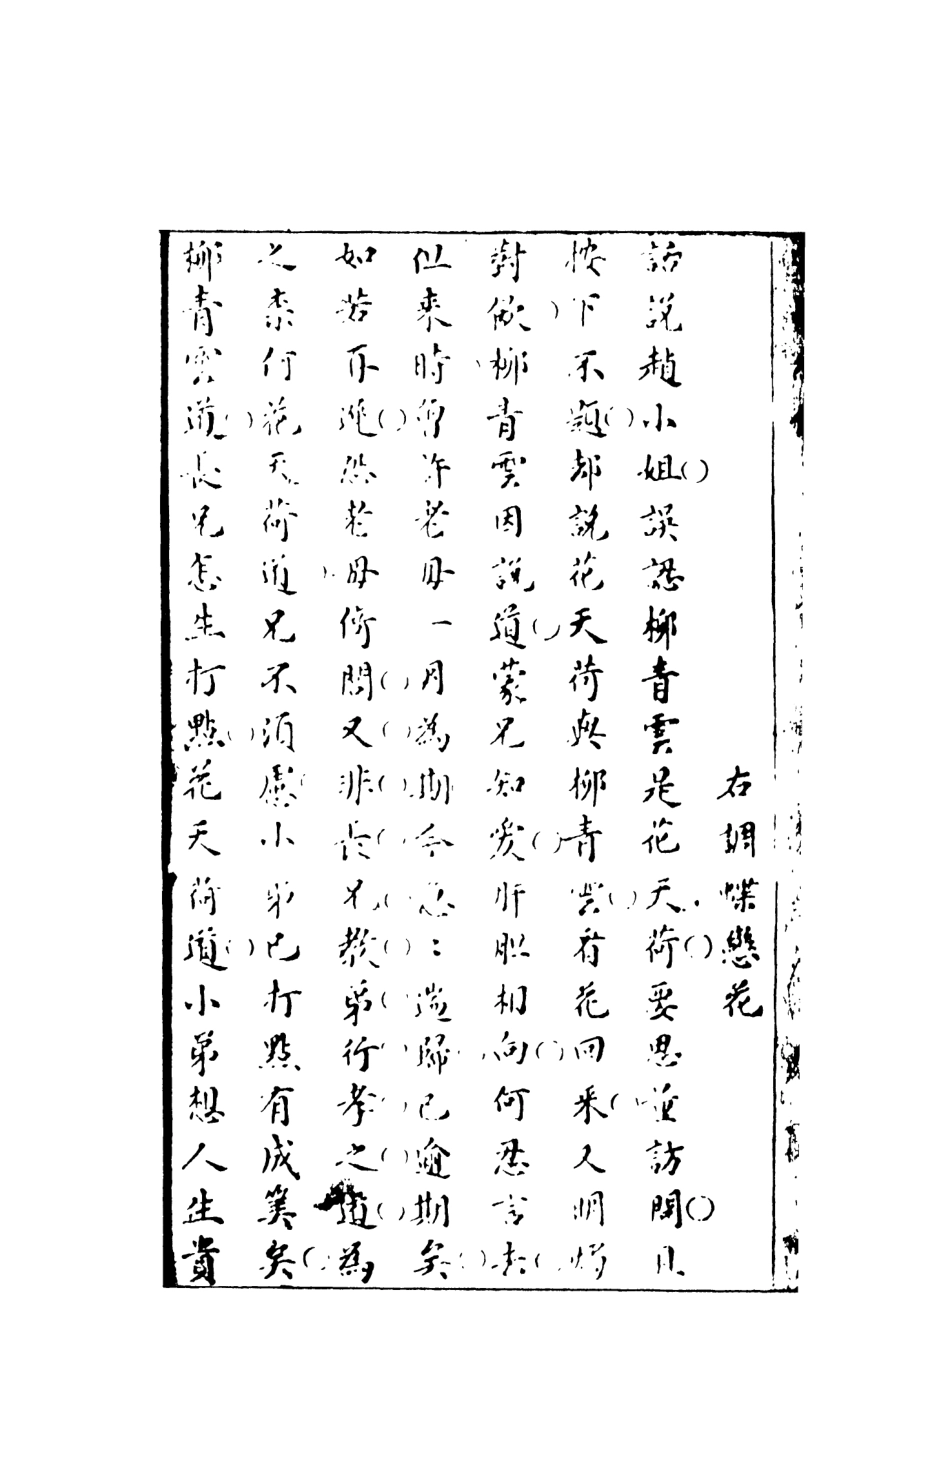 右調蝶戀花
話說趙小姐誤認柳青雲是花天荷要思並訪問且
按下不題却說花天荷與柳青雲看花回來又明燭
對飲柳青雲因說道蒙兄知愛肝胆相向何忍言去
但來時曾許老母一月為期今忽〻遄歸已逾期矣
如若再遲恐老母倚閭又非長兄教弟行孝之道為
之柰何花天荷道兄不須慮小弟已打點有成筭矣
柳青雲道長兄怎生打點花天荷道小弟想人生貴